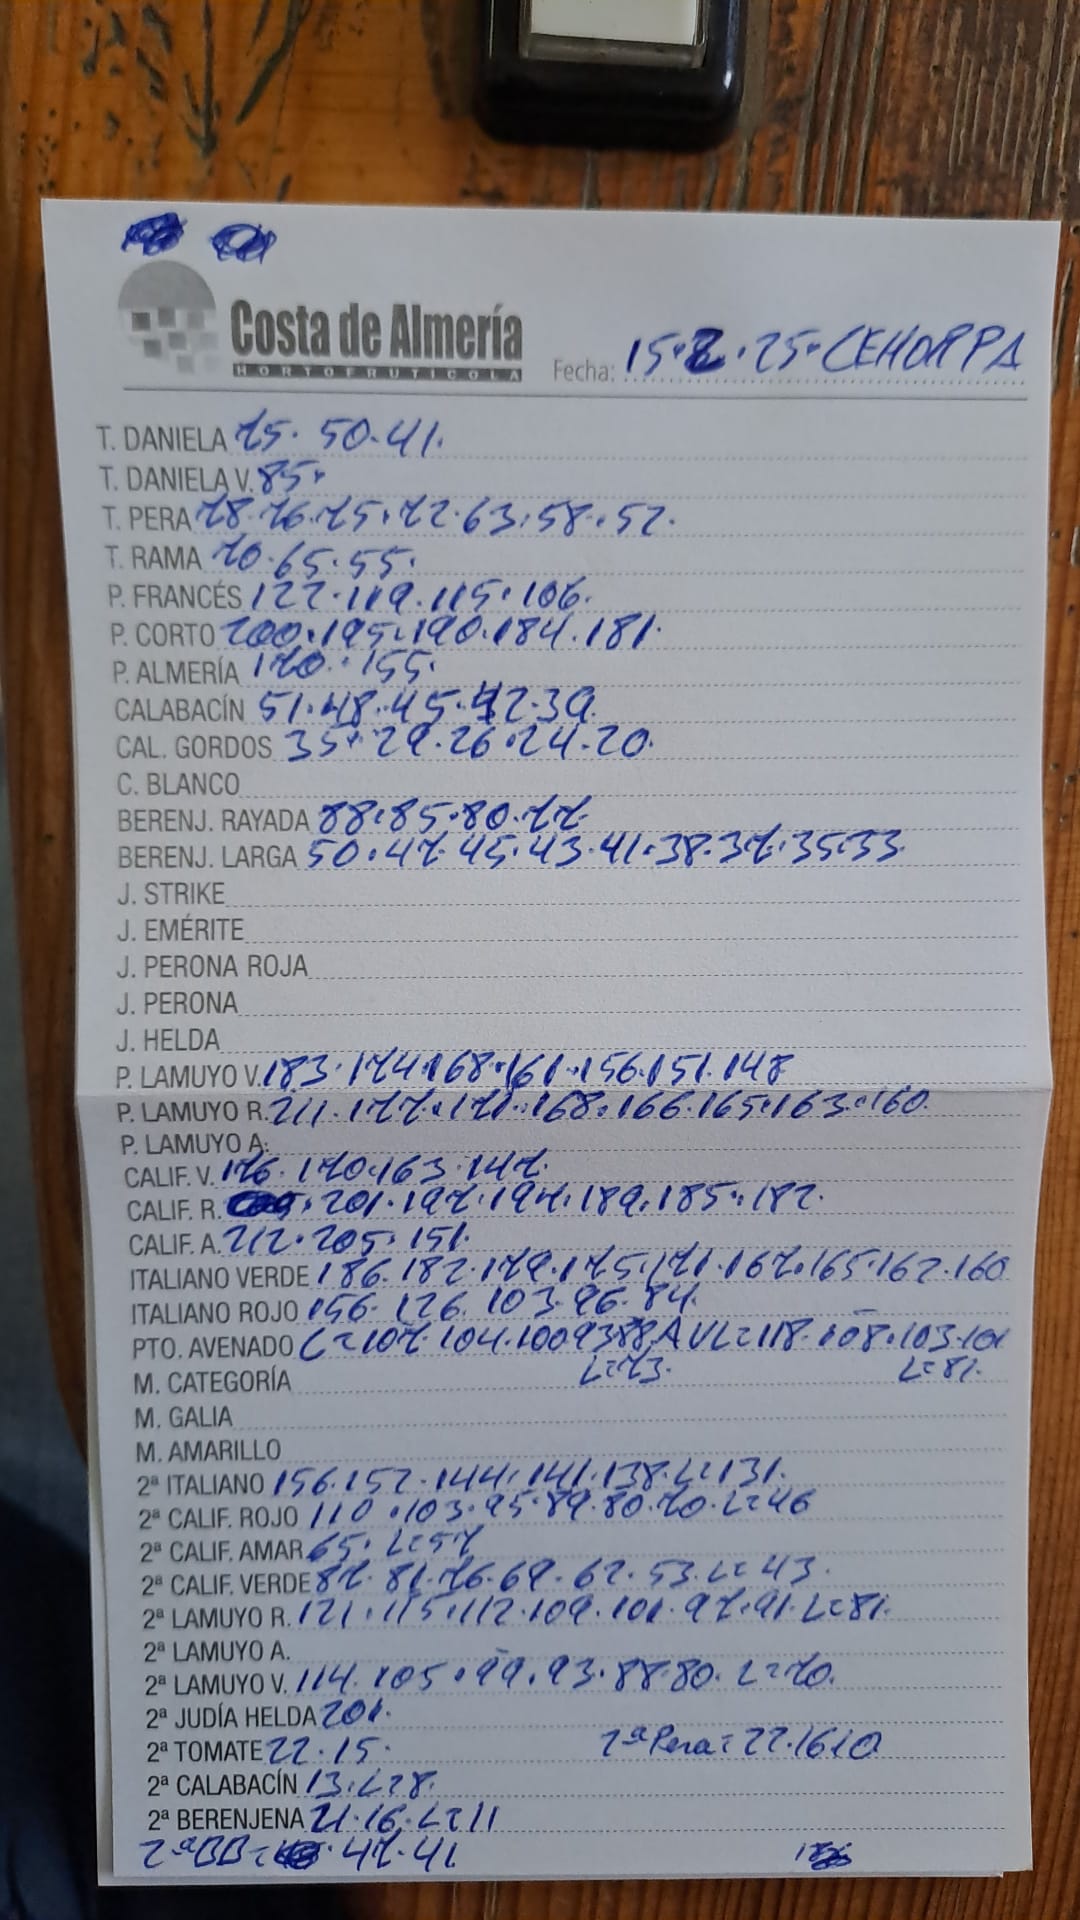 Costa de Almería
HORTOFRUTICOLA
Fecha: 15·2·25·CEHORPA
T. DANIELA 75· 50·41·
T. DANIELA V. 85·
T. PERA 78·76·75·72·63·58·52·
T. RAMA 70·65·55·
P. FRANCÉS 122·119·115·106·
P. CORTO 200·195·190·184·181·
P. ALMERÍA 170·155·
CALABACÍN 51·48·45·42·39·
CAL. GORDOS 35·29·26·24·20·
C. BLANCO
BERENJ. RAYADA 88·85·80·77·
BERENJ. LARGA 50·47·45·43·41·38·37·35·33·
J. STRIKE
J. EMÉRITE
J. PERONA ROJA
J. PERONA
J. HELDA
P. LAMUYO V. 183·174·168·161·156·151·148
P. LAMUYO R. 211·177·171·168·166·165·163·160·
P. LAMUYO A.
CALIF. V. 176·170·163·147·
CALIF. R. 201·197·194·189·185·182·
CALIF. A. 212·205·151·
ITALIANO VERDE 186·182·179·175·171·167·165·162·160
ITALIANO ROJO 156·126·103·96·84·
PTO. AVENADO L=107·104·100 93 88, AVL=118·108·103·101
M. CATEGORÍA L=73· L=81·
M. GALIA
M. AMARILLO
2ª ITALIANO 156·152·144·141·138·L=131·
2ª CALIF. ROJO 110·103·95·89·80·70·L=46
2ª CALIF. AMAR 65·L=57
2ª CALIF. VERDE 87·81·76·69·62·53·L=43·
2ª LAMUYO R. 121·115·112·109·101·97·91·L=81·
2ª LAMUYO A.
2ª LAMUYO V. 114·105·99·93·88·80·L=70·
2ª JUDÍA HELDA 201·
2ª TOMATE 22·15· 2ª Pera=22·16·10
2ª CALABACÍN 13·L=8·
2ª BERENJENA 21·16·L=11
2ªBB= 47·41·